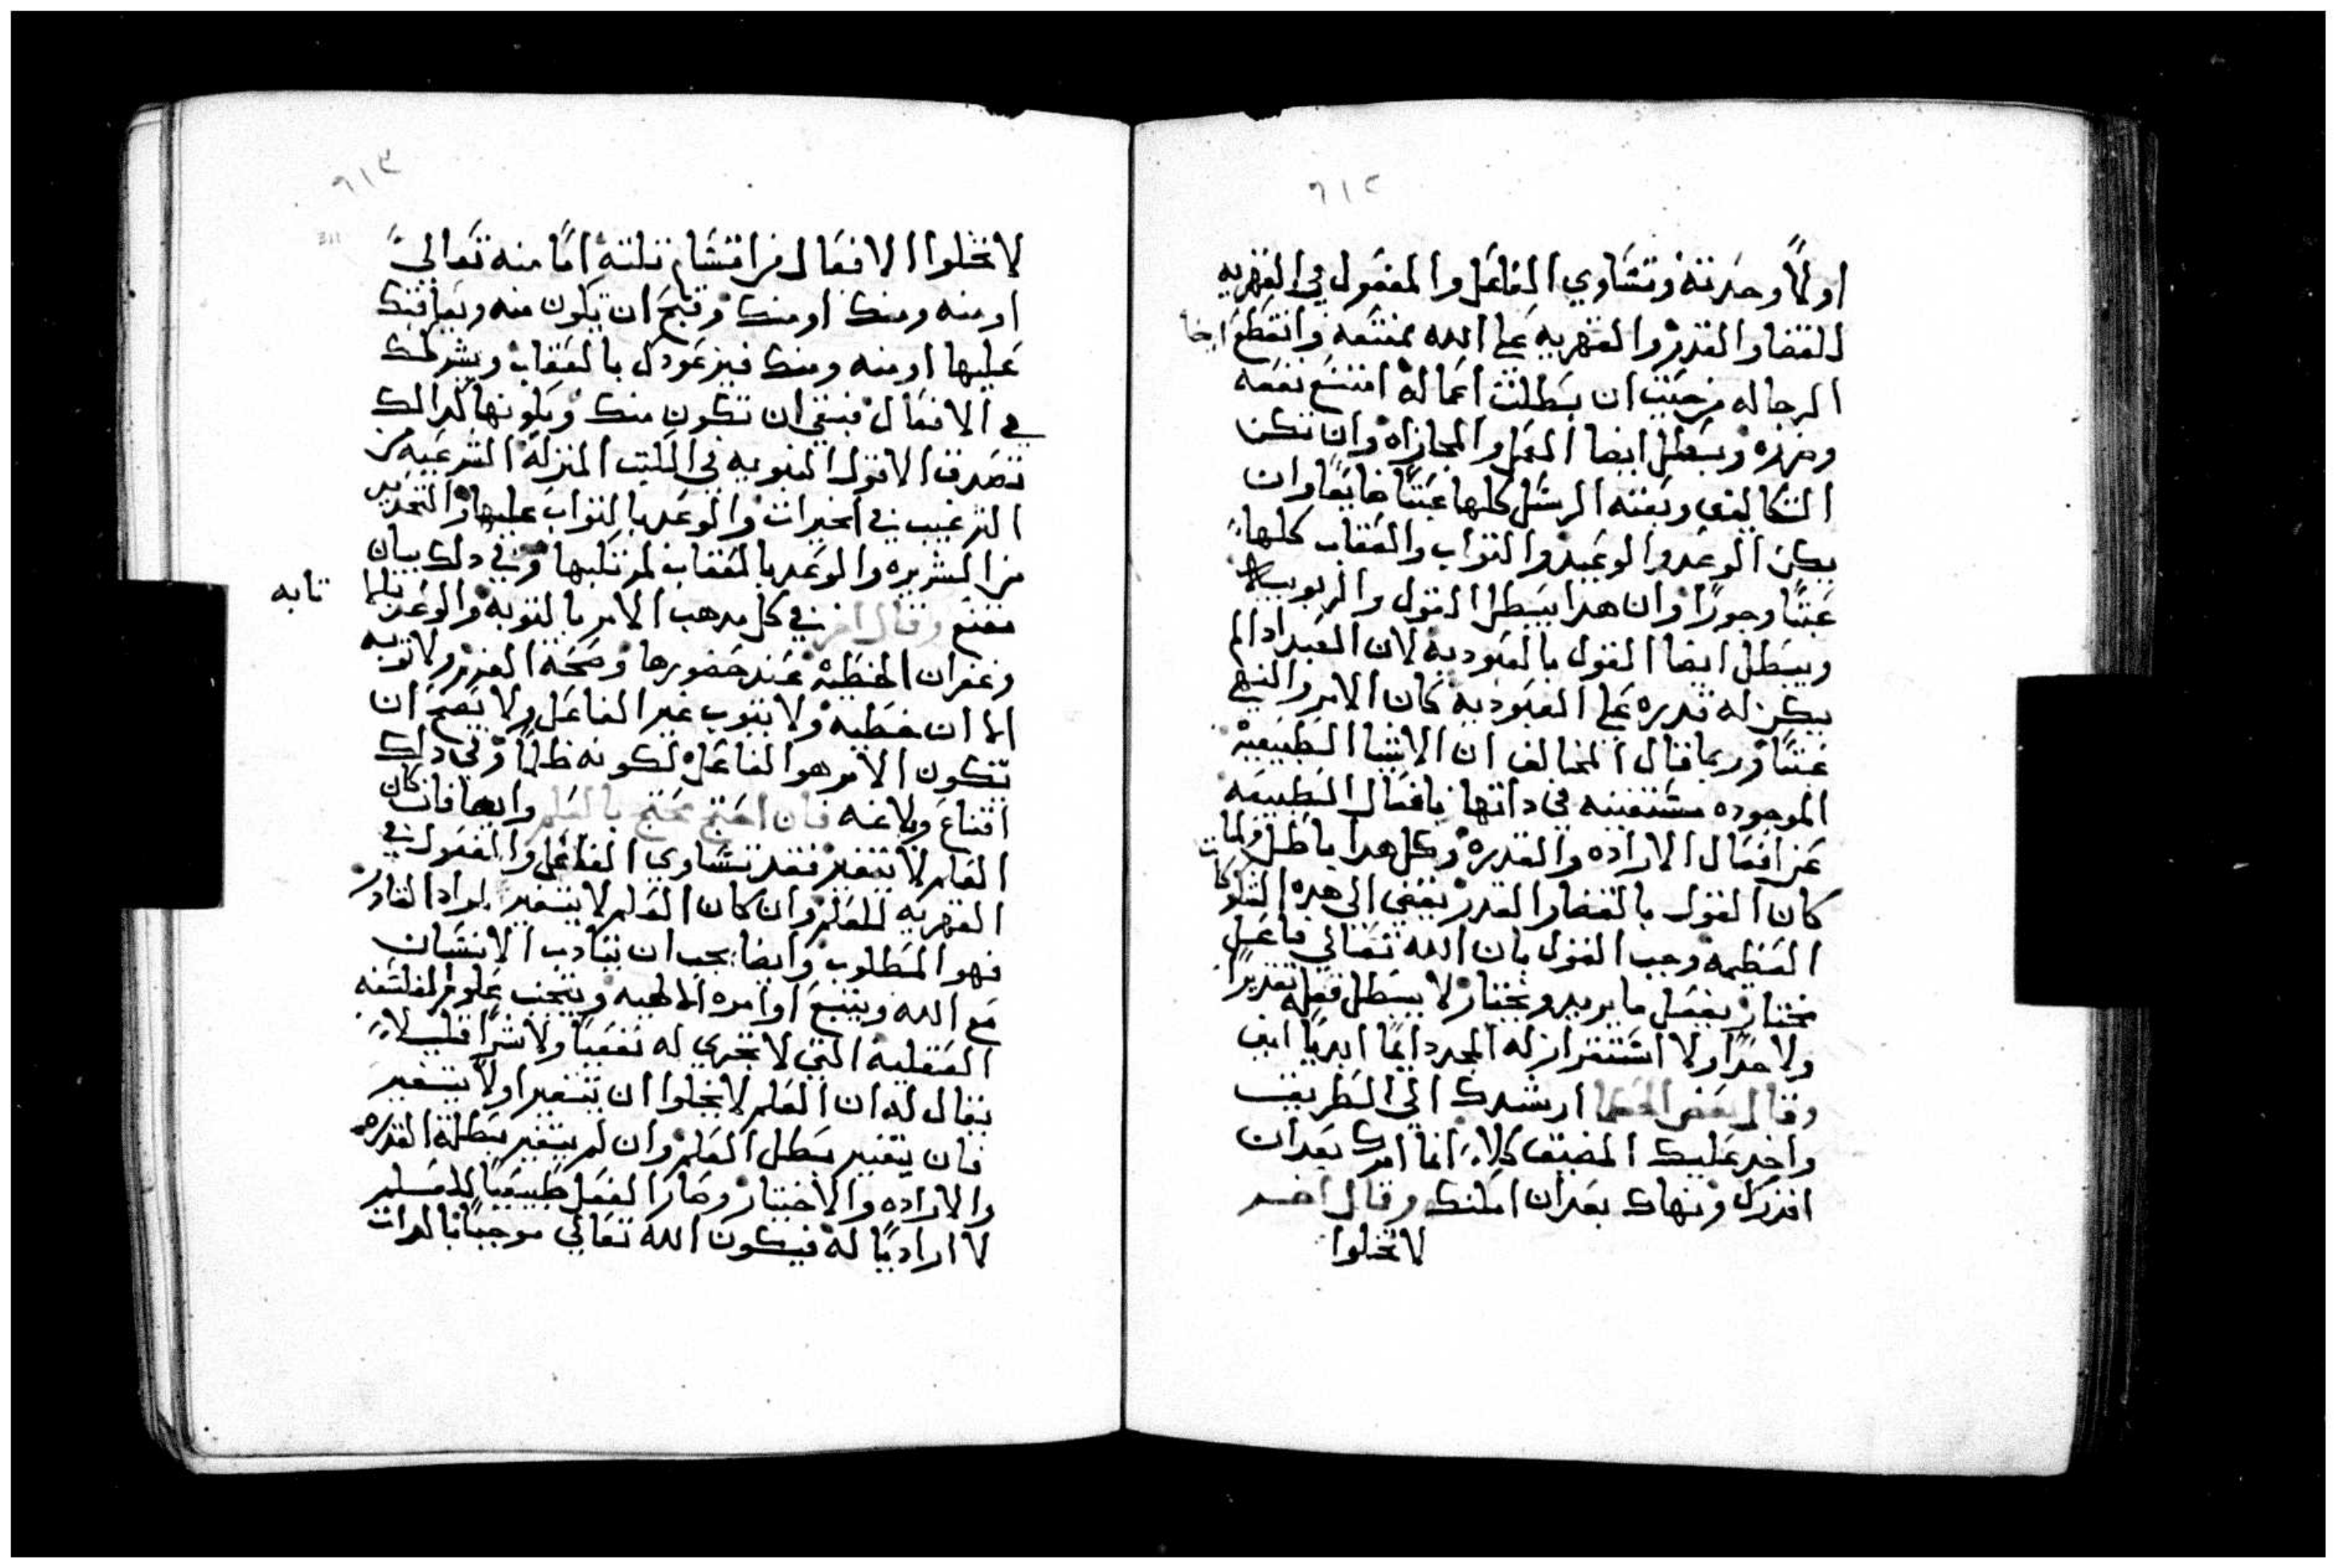 ٦١٢
اولاً وحدرته وتساوي الفاعل والمفعول في القهريه
للقضا والقدر والقهريه علي الله ممتنعه وانقطع الرجا
الرجا له من حيث ان بطلت اعماله امتنع نفعه
وضرره وبطل ايضا العمل والمجازاه وان تكن
التكاليف وبعثه الرسل كلها عبثًا ضايعًا وان
يكن الوعد والوعيد والثواب والعقاب كلها
عبثًا وجورًا وان هذا يبطل القول والربوبيه
ويبطل ايضا القول بالعبوديه لان العبد اذا لم
يكن له قدره علي العبوديه كان الامر والنهي
عبثًا وربما قال المخالف ان الاشيا الطبيعيه
الموجوده مستغنيه في داتها بافعال الطبيعه
عن افعال الاراده والقدره وكل هدا باطل ولما
كان القول بالقضا والقدر يفضي الي هده
العظيمه وجب القول بان الله تعالي فاعل
مختار يفعل ما يريد ويختار لا يبطل فعله تقديرًا
ولا حدًا ولا استقرار له المجد دايمًا ابديًا امين
وقال بعض الحكما ارشدك الي الطريق
واخد عليك المضيق كلا انما امرك بعد ان
اقدرك ونهاك بعد ان امكنك وقال اخر
لا تخلوا
٦١٣
لا تخلوا الافعال من اقسام تلته اما منه تعالي
او منه ومنك او منك وقبح ان تكون منه ويعاقبك
عليها او منه ومنك فيزعودك بالعقاب ويشركك
في الافعال فبقي ان تكون منك وبكونها كدالك
تصدق الاقوال النبويه في الكتب المنزله الشرعيه من
الترغيب في الخيرات والوعد بالثواب عليها والتحدير
من الشريره والوعد بالعقاب لمرتكبها وفي دلك بيان
مقنع وقال اخر في كل مدهب الامر بالتوبه والوعد
تابه
وغفران الخطيه عند حضورها وصحة العزم ولا توبه
الا ان خطيه ولا يتوب غير الفاعل ولا يصح ان
تكون الامر هو الفاعل لكونه ظالمًا وفي دلك
اقناع وبلاغه فان احتج محتج بالعلم وايضا فان كان
العلم لا يتغير فقد تساوي الفاعل والمفعول في
القهريه للعلم وان كان العلم لا يتغير لمراد القادر
فهو المطلوب وايضا يجب ان يتادب الانسان
مع الله ويتبع اوامره الالهيه ويتجنب علوم الفلسفه
العقليه التي لا تجدي له نفعيًا ولا شرًا قليلا
يقال له ان العلم لا يخلوا ان يتغير او لا يتغير
فان يتغير بطل العلم وان لم يتغير بطلة القدره
والاراده والاختيار وصار الفعل طبيعيًا للعلم
لا اراديًا له فيكون الله تعالي موجبًا بالدات